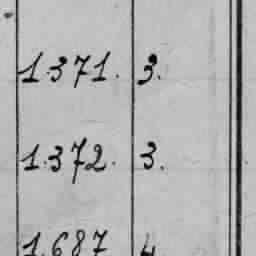 1.371. 3.
1.372. 3.
1.687 4